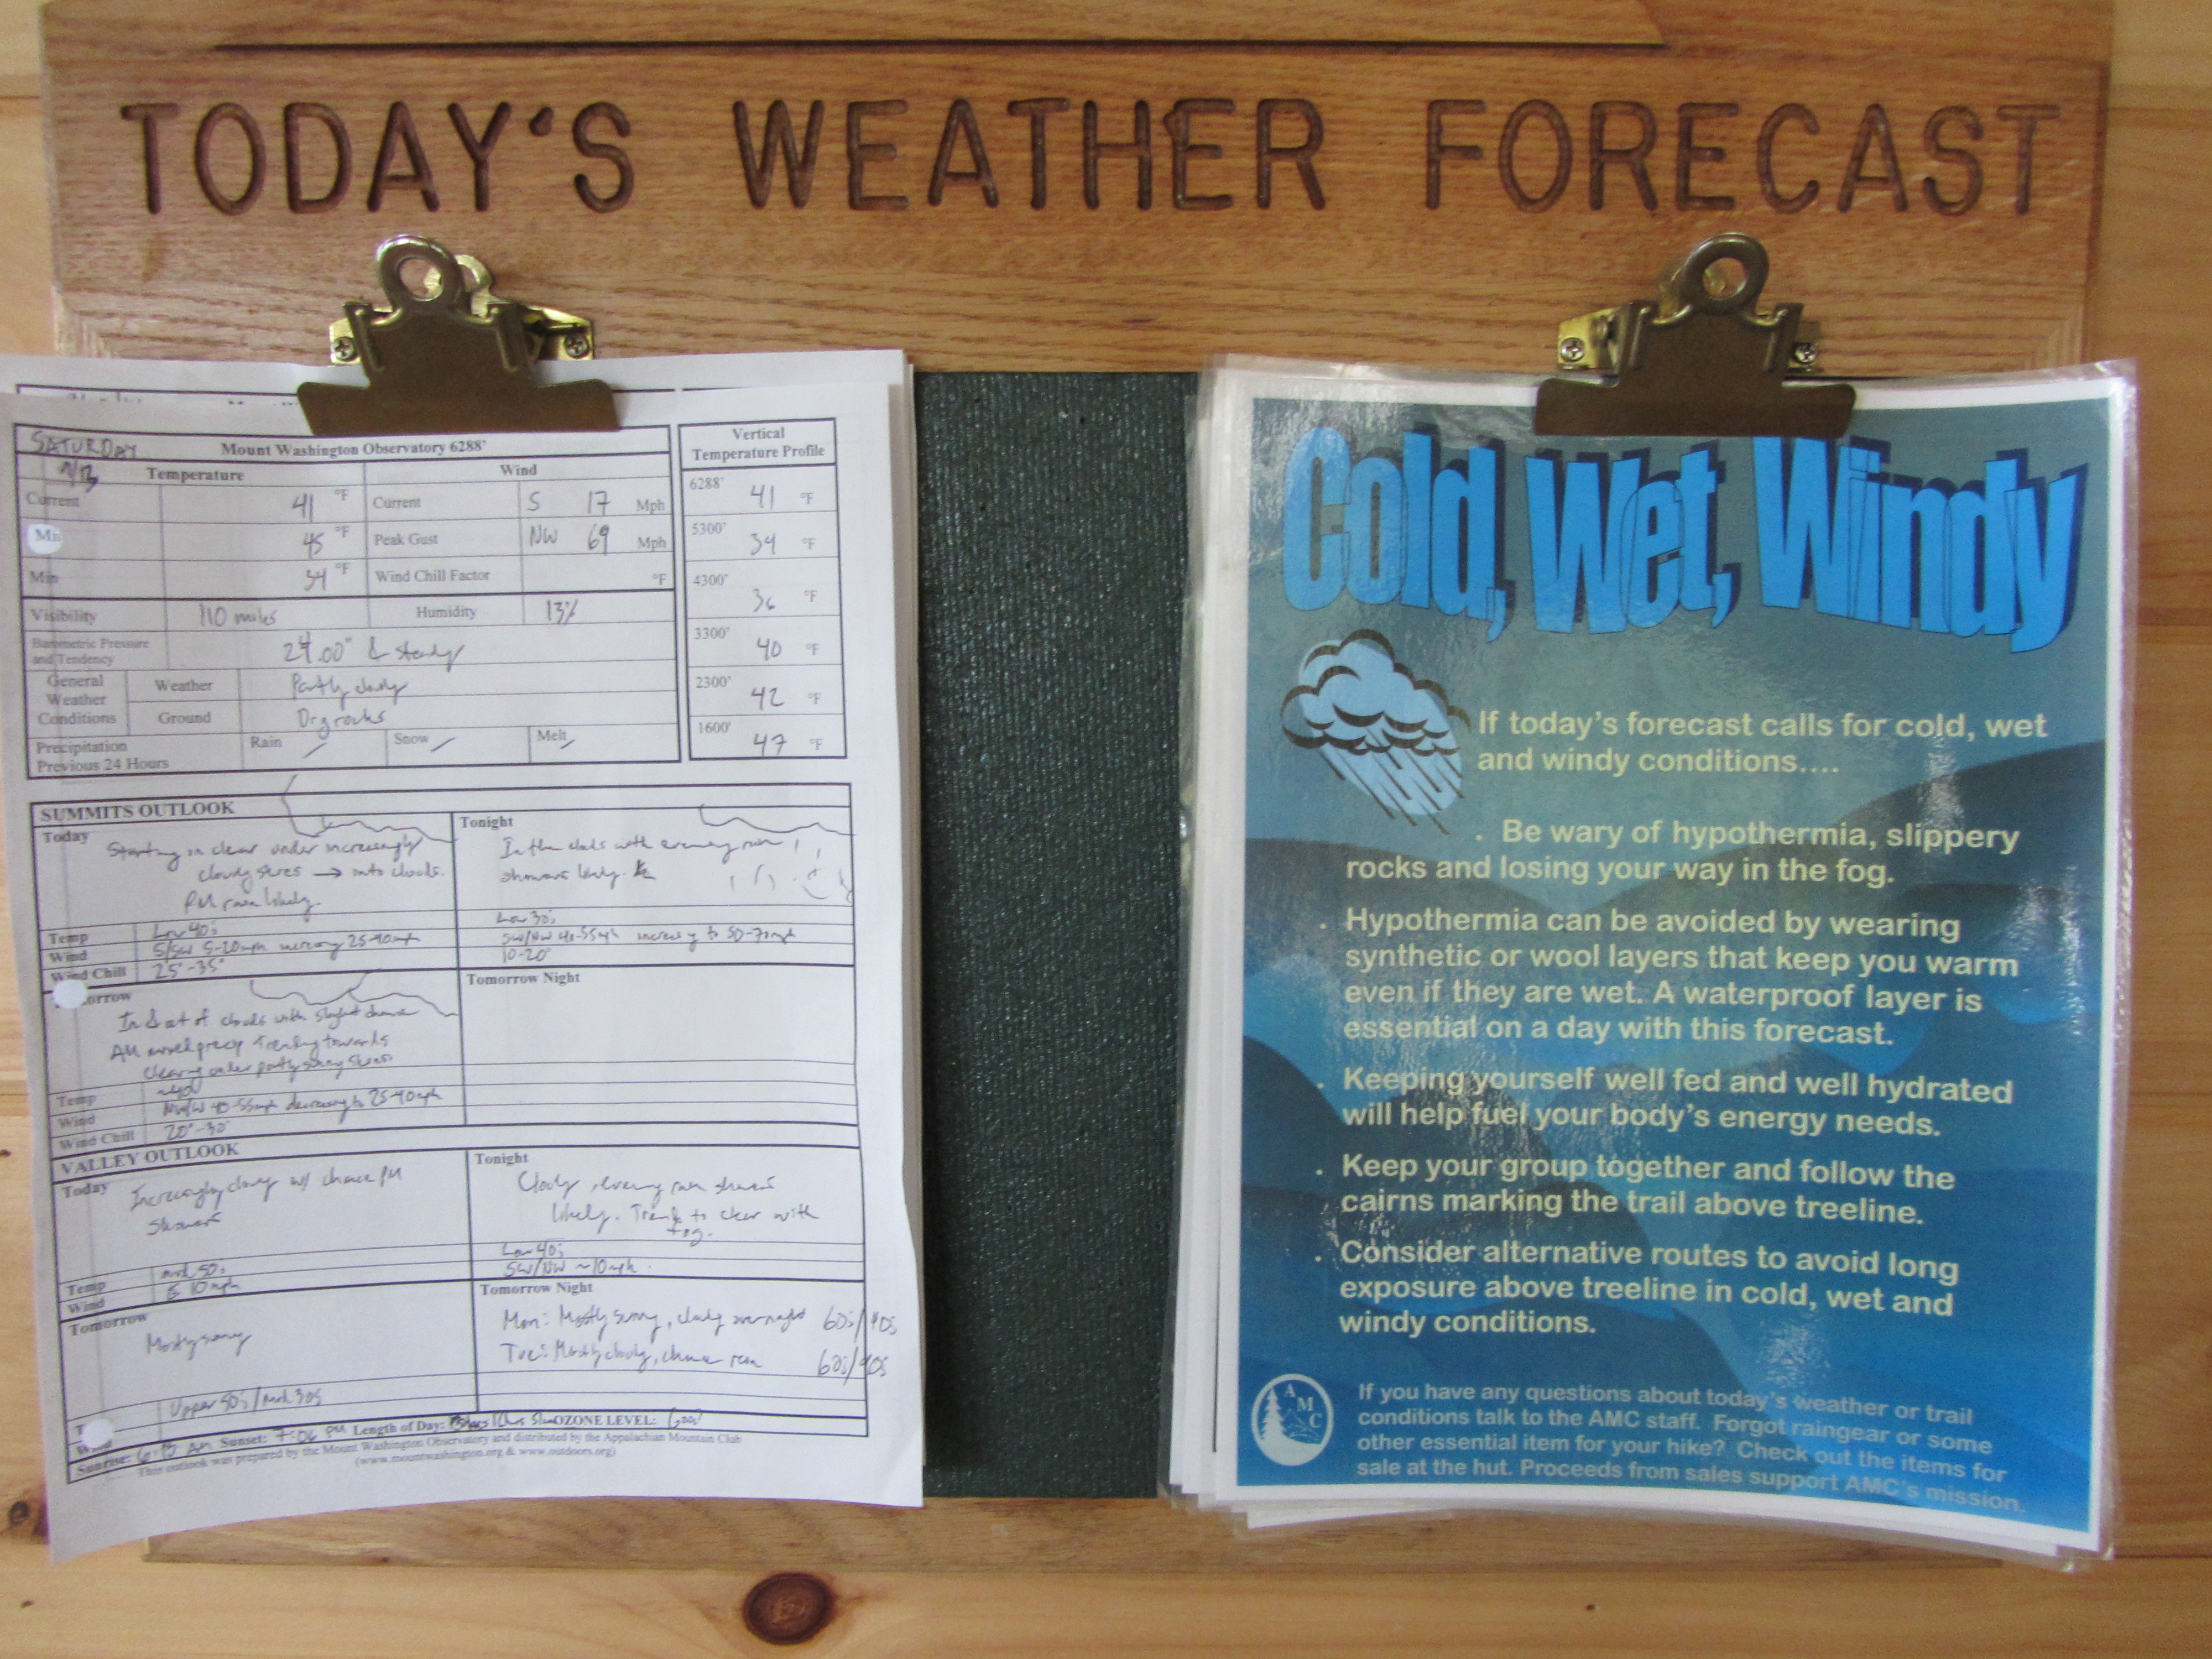 TODAY'S WEATHER FORECAST
SATURDAY
9/13
Mount Washington Observatory 6288'
Temperature
Wind
Current 41 °F Current S 17 Mph
45 °F Peak Gust NW 69 Mph
Min 34 °F Wind Chill Factor °F
Visibility 110 miles Humidity 13%
Barometric Pressure
and Tendency
24.00" & steady
General
Weather
Conditions
Weather Partly cloudy
Ground Dry rocks
Precipitation
Previous 24 Hours
Rain Snow Melt
Vertical
Temperature Profile
6288' 41 °F
5300' 39 °F
4300' 36 °F
3300' 40 °F
2300' 42 °F
1600' 47 °F
SUMMITS OUTLOOK
Today
Starting in clear under increasingly
cloudy skies → into clouds.
PM rain likely.
Temp Low 40s
Wind S/SW 5-20mph increasing 25-40mph
Wind Chill 25°-35°
Tonight
In the clouds with evening rain
showers likely.
Low 30s
SW/NW 40-55mph increasing to 50-70mph
10-20°
Tomorrow
In & out of clouds with slight chance
AM mixed precip trending towards
clearing under partly sunny skies
Temp ~40
Wind NW/W 40-55mph decreasing to 25-40mph
Wind Chill 20°-30°
Tomorrow Night
VALLEY OUTLOOK
Today
Increasingly cloudy w/ chance PM
showers
Temp mid 50s
Wind 10mph
Tonight
Cloudy, evening rain showers
likely. Trend to clear with
fog.
Low 40s
SW/NW ~10mph.
Tomorrow
Mostly sunny
Upper 50s/mid 30s
Tomorrow Night
Mon: Mostly sunny, cloudy overnight 60s/40s
Tue: Mostly cloudy, chance rain 60s/40s
Sunrise: AM Sunset: 7:06 PM Length of Day: OZONE LEVEL: Good
This outlook was prepared by the Mount Washington Observatory and distributed by the Appalachian Mountain Club
(www.mountwashington.org & www.outdoors.org)
Cold, Wet, Windy
If today's forecast calls for cold, wet
and windy conditions....
. Be wary of hypothermia, slippery
rocks and losing your way in the fog.
. Hypothermia can be avoided by wearing
synthetic or wool layers that keep you warm
even if they are wet. A waterproof layer is
essential on a day with this forecast.
. Keeping yourself well fed and well hydrated
will help fuel your body's energy needs.
. Keep your group together and follow the
cairns marking the trail above treeline.
. Consider alternative routes to avoid long
exposure above treeline in cold, wet and
windy conditions.
AMC
If you have any questions about today's weather or trail
conditions talk to the AMC staff. Forgot raingear or some
other essential item for your hike? Check out the items for
sale at the hut. Proceeds from sales support AMC's mission.